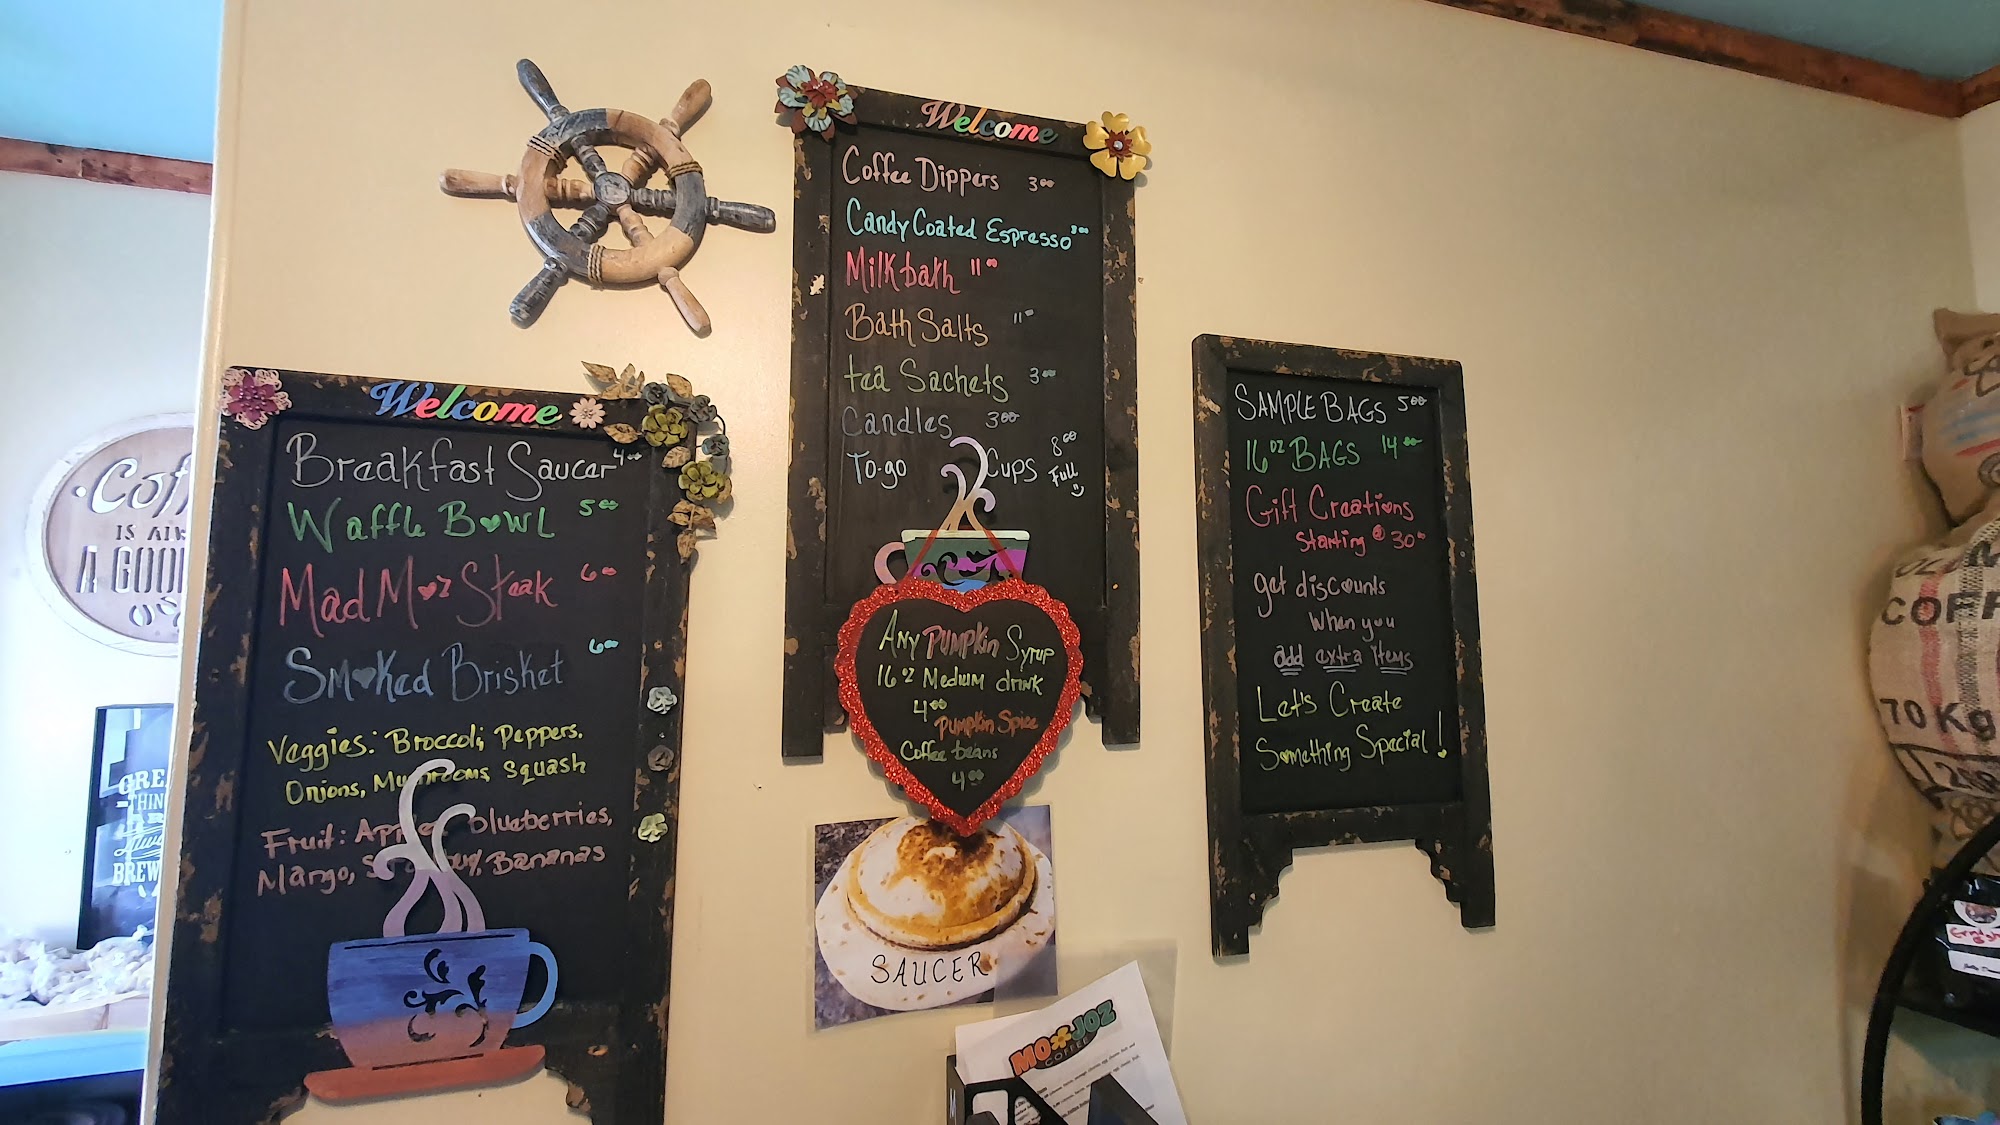 Welcome
Breakfast Saucer 4.00
Waffle Bowl 5.00
Mad Moz Steak 6.00
Smoked Brisket 6.00
Veggies: Broccoli, Peppers,
Onions, Mushrooms, Squash
Fruit: Apples, blueberries,
Mango, Strawberry, Bananas
Welcome
Coffee Dippers 3.00
Candy Coated Espresso 3.00
Milkbath 11.00
Bath Salts 11.00
tea Sachets 3.00
Candles 3.00
To-go Cups 8.00
Full
Any Pumpkin Syrup
16 oz Medium drink
4.00
Pumpkin Spice
Coffee beans
4.00
SAUCER
MOJOZ
COFFEE
SAMPLE BAGS 5.00
16 oz BAGS 14.00
Gift Creations
Starting @ 30.00
get discounts
When you
add extra items
Let's Create
Something Special!
IS
A GOOD
THIN
BREW
COFF
70 Kg